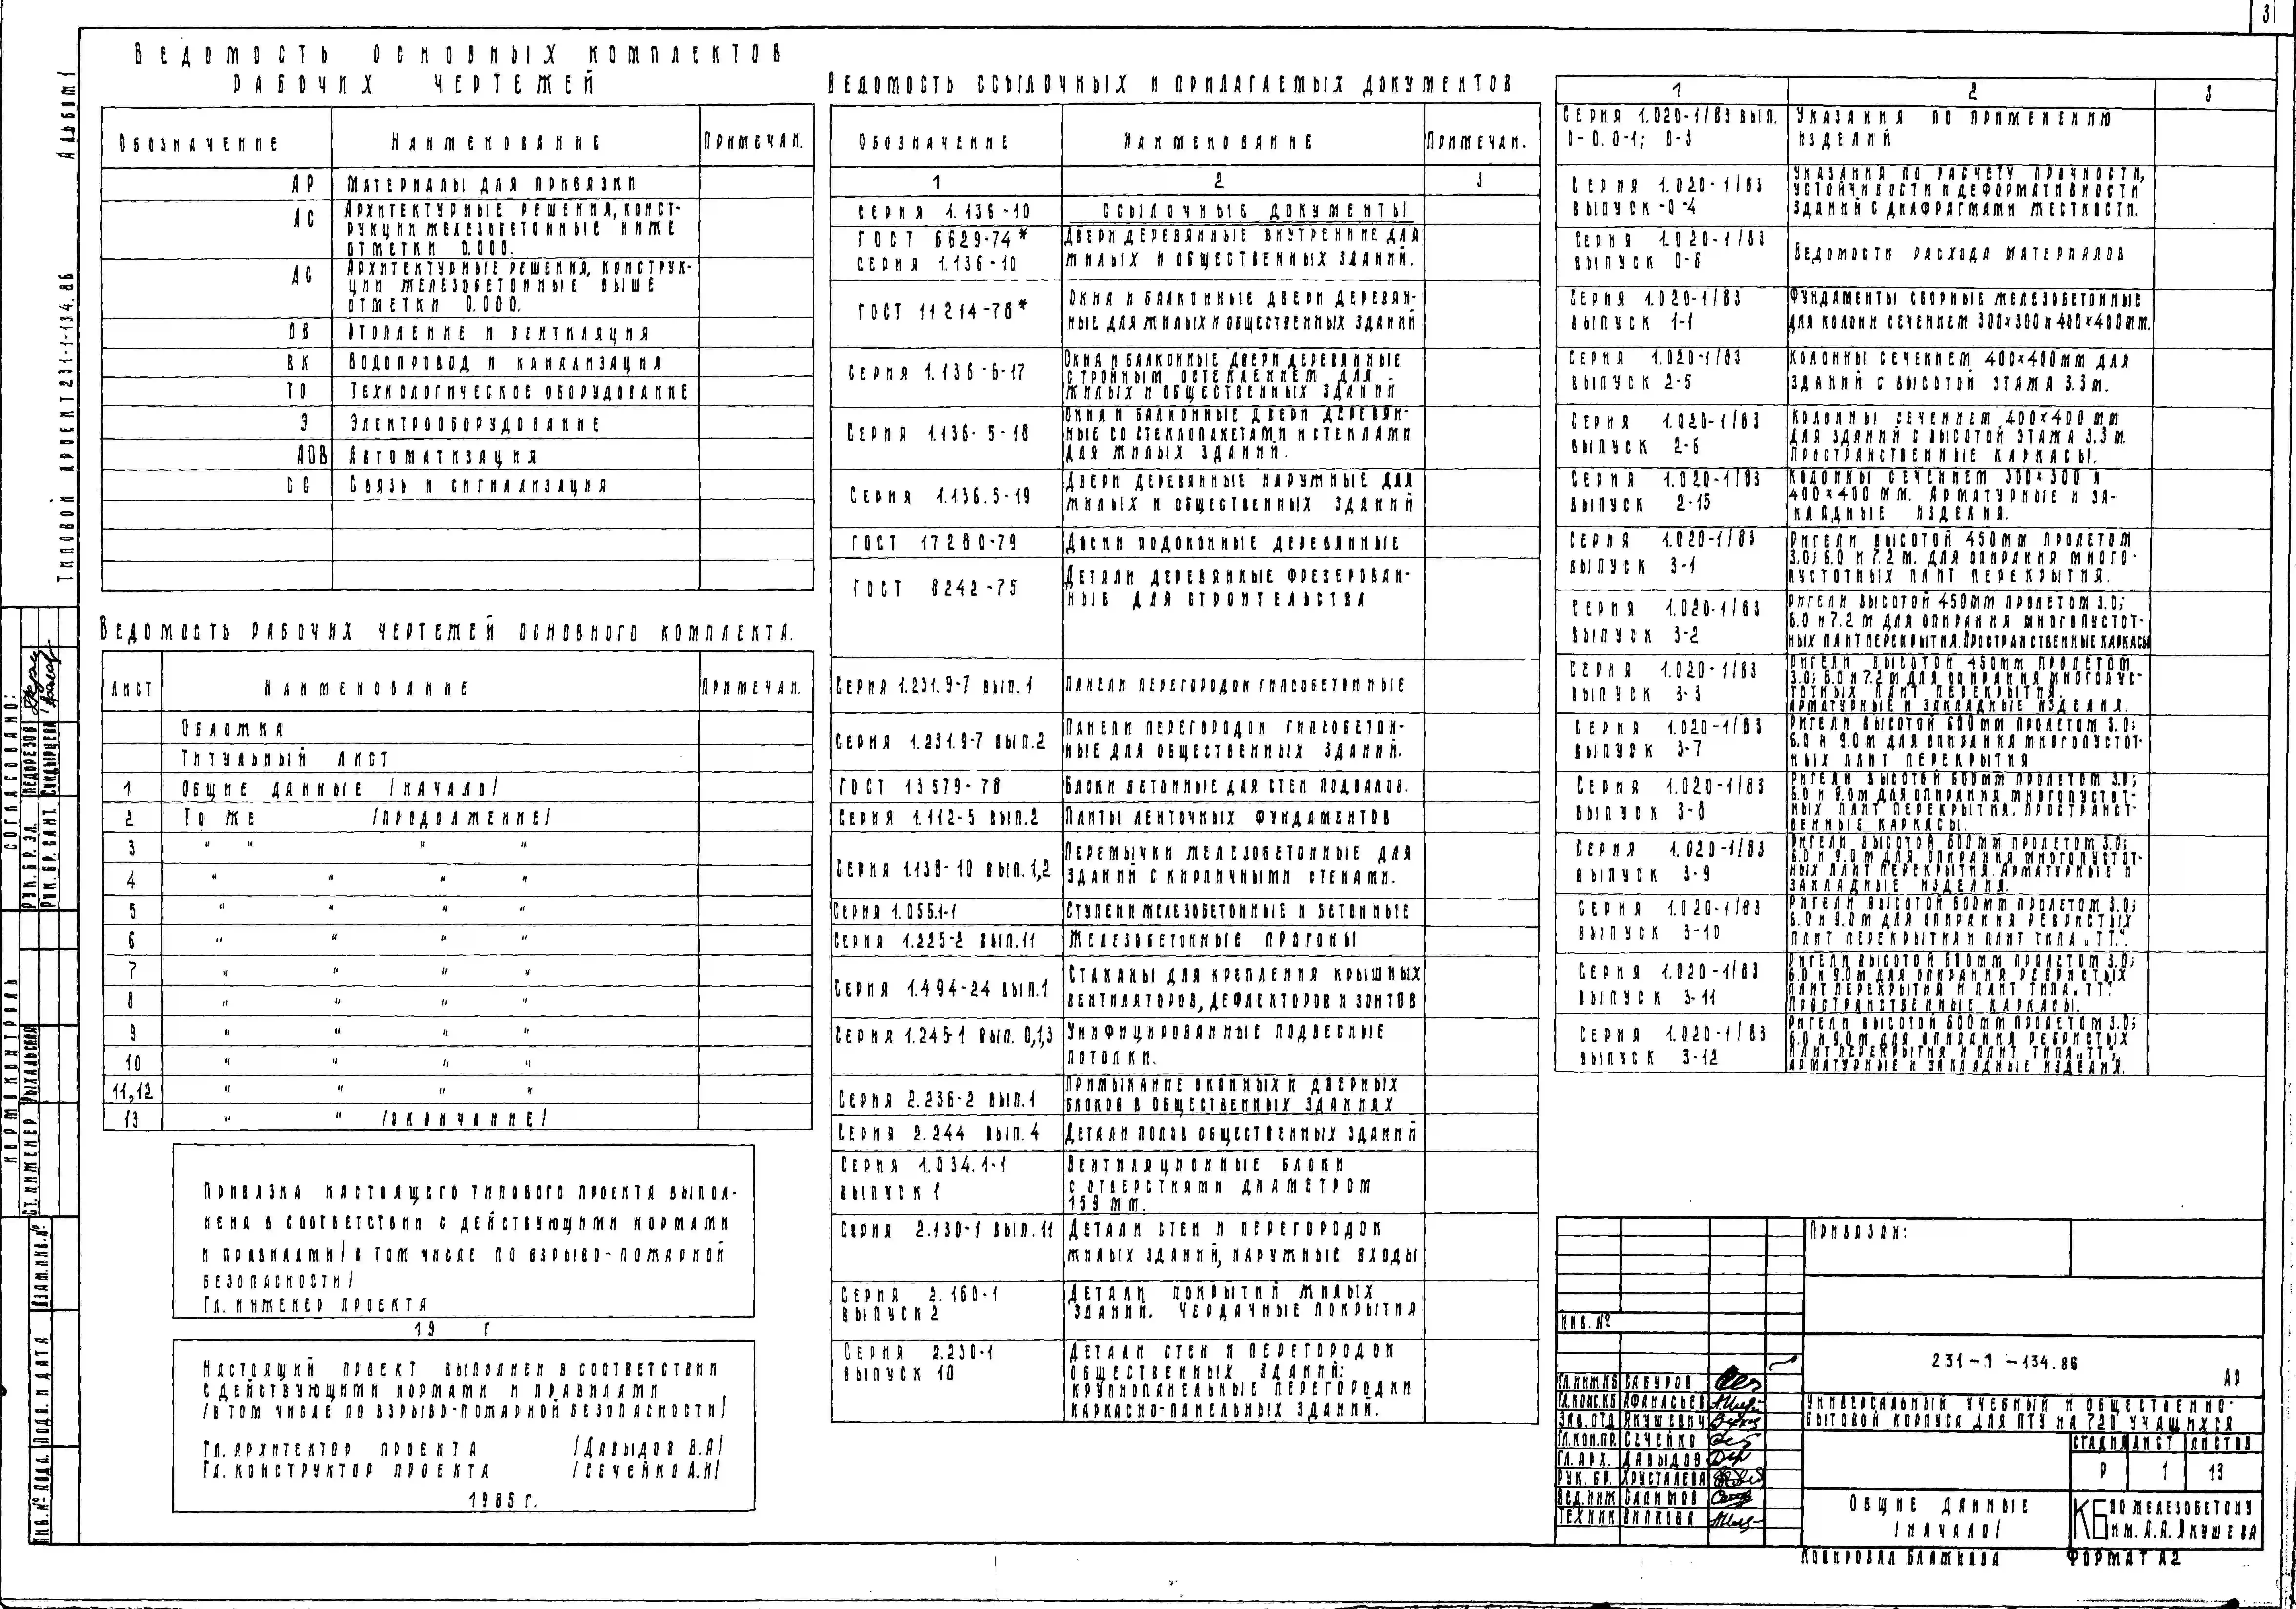 3
Альбом 1
Типовой проект 231-1-134.86
Ведомость основных комплектов
рабочих чертежей
Обозначение Наименование Примечан.
АР Материалы для привязки
АС Архитектурные решения, конст-
рукции железобетонные ниже
отметки 0.000.
АС Архитектурные решения, конструк-
ции железобетонные выше
отметки 0.000.
ОВ Отопление и вентиляция
ВК Водопровод и канализация
ТО Технологическое оборудование
Э Электрооборудование
АОВ Автоматизация
СС Связь и сигнализация
Ведомость рабочих чертежей основного комплекта.
Лист Наименование Примечан.
Обложка
Титульный лист
1 Общие данные /начало/
2 То же /продолжение/
3 " " " "
4 " " " "
5 " " " "
6 " " " "
7 " " " "
8 " " " "
9 " " " "
10 " " " "
11,12 " " " "
13 " " /окончание/
Привязка настоящего типового проекта выпол-
нена в соответствии с действующими нормами
и правилами/в том числе по взрыво-пожарной
безопасности/
Гл. инженер проекта
19 г
Настоящий проект выполнен в соответствии
с действующими нормами и правилами
/в том числе по взрыво-пожарной безопасности/
Гл. архитектор проекта /Давыдов В.А/
Гл. конструктор проекта /Сечейко А.И/
1985 г.
Ведомость ссылочных и прилагаемых документов
Обозначение Наименование Примечан.
1 2 3
Серия 1.136-10 Ссылочные документы
ГОСТ 6629-74* Двери деревянные внутренние для
Серия 1.136-10 жилых и общественных зданий.
ГОСТ 11214-78* Окна и балконные двери деревян-
ные для жилых и общественных зданий
Серия 1.136-6-17 Окна и балконные двери деревянные
с тройным остеклением для
жилых и общественных зданий
Серия 1.136-5-18 Окна и балконные двери деревян-
ные со стеклопакетами и стеклами
для жилых зданий.
Серия 1.136.5-19 Двери деревянные наружные для
жилых и общественных зданий
ГОСТ 17280-79 Доски подоконные деревянные
ГОСТ 8242-75 Детали деревянные фрезерован-
ные для строительства
Серия 1.231.9-7 вып.1 Панели перегородок гипсобетонные
Серия 1.231.9-7 вып.2 Панели перегородок гипсобетон-
ные для общественных зданий.
ГОСТ 13579-78 Блоки бетонные для стен подвалов.
Серия 1.112-5 вып.2 Плиты ленточных фундаментов
Серия 1.138-10 вып.1,2 Перемычки железобетонные для
зданий с кирпичными стенами.
Серия 1.055.1-1 Ступени железобетонные и бетонные
Серия 1.225-2 вып.11 Железобетонные прогоны
Серия 1.494-24 вып.1 Стаканы для крепления крышных
вентиляторов, дефлекторов и зонтов
Серия 1.245-1 вып. 0,1,3 Унифицированные подвесные
потолки.
Серия 2.236-2 вып.1 Примыкание оконных и дверных
блоков в общественных зданиях
Серия 2.244 вып.4 Детали полов общественных зданий
Серия 1.034.1-1 Вентиляционные блоки
выпуск 1 с отверстиями диаметром
159 мм.
Серия 2.130-1 вып.11 Детали стен и перегородок
жилых зданий, наружные входы
Серия 2.160-1 Детали покрытий жилых
выпуск 2 зданий. Чердачные покрытия
Серия 2.230-1 Детали стен и перегородок
выпуск 10 общественных зданий:
крупнопанельные перегородки
каркасно-панельных зданий.
1 2 3
Серия 1.020-1/83 вып. Указания по применению
0-0.0-1; 0-3 изделий
Серия 1.020-1/83 Указания по расчету прочности,
выпуск-0-4 устойчивости и деформативности
зданий с диафрагмами жесткости.
Серия 1.020-1/83 Ведомости расхода материалов
выпуск 0-6
Серия 1.020-1/83 Фундаменты сборные железобетонные
выпуск 1-1 для колонн сечением 300×300 и 400×400мм.
Серия 1.020-1/83 Колонны сечением 400×400мм для
выпуск 2-5 зданий с высотой этажа 3.3м.
Серия 1.020-1/83 Колонны сечением 400×400 мм
выпуск 2-6 для зданий с высотой этажа 3.3м.
Пространственные каркасы.
Серия 1.020-1/83 Колонны сечением 300×300 и
выпуск 2-15 400×400 мм. Арматурные и за-
кладные изделия.
Серия 1.020-1/83 Ригели высотой 450мм пролетом
выпуск 3-1 3.0; 6.0 и 7.2 м. для опирания много-
пустотных плит перекрытия.
Серия 1.020-1/83 Ригели высотой 450мм пролетом 3.0;
выпуск 3-2 6.0 и 7.2 м для опирания многопустот-
ных плит перекрытия. Пространственные каркасы
Серия 1.020-1/83 Ригели высотой 450мм пролетом
выпуск 3-3 3.0; 6.0 и 7.2 м для опирания многопус-
тотных плит перекрытия.
Арматурные и закладные изделия.
Серия 1.020-1/83 Ригели высотой 600мм пролетом 3.0;
выпуск 3-7 6.0 и 9.0м для опирания многопустот-
ных плит перекрытия
Серия 1.020-1/83 Ригели высотой 600мм пролетом 3.0;
выпуск 3-8 6.0 и 9.0м для опирания многопустот-
ных плит перекрытия. Пространст-
венные каркасы.
Серия 1.020-1/83 Ригели высотой 600мм пролетом 3.0;
выпуск 3-9 6.0 и 9.0м для опирания многопустот-
ных плит перекрытия. Арматурные и
закладные изделия.
Серия 1.020-1/83 Ригели высотой 600мм пролетом 3.0;
выпуск 3-10 6.0 и 9.0м для опирания ребристых
плит перекрытия и плит типа „ТТ".
Серия 1.020-1/83 Ригели высотой 600мм пролетом 3.0;
выпуск 3-11 6.0 и 9.0м для опирания ребристых
плит перекрытия и плит типа „ТТ".
Пространственные каркасы.
Серия 1.020-1/83 Ригели высотой 600мм пролетом 3.0;
выпуск 3-12 6.0 и 9.0м для опирания ребристых
плит перекрытия и плит типа „ТТ",
Арматурные и закладные изделия.
Согласовано:
Рук. бр. эл. Недорезов
Рук. бр. сант. Сундырцева
Нормоконтроль
Ст. инженер Рыхальская
Взам. инв. №
Подп. и дата
Инв. № подл.
Привязан:
Инв. №
231-1-134.86 АР
Гл.инж КБ Сабуров
Гл.конс.КБ Афанасьев
Зав. отд Якушевич
Гл.кон.пр. Сечейко
Гл. арх. Давыдов
Рук. бр. Хрусталева
Вед.инж Салимов
Техник Вилкова
Универсальный учебный и общественно-
бытовой корпуса для ПТУ на 720 учащихся
Стадия Лист Листов
Р 1 13
Общие данные
/начало/
КБ по железобетону
им. А.А. Якушева
Копировал Блажнова Формат А2